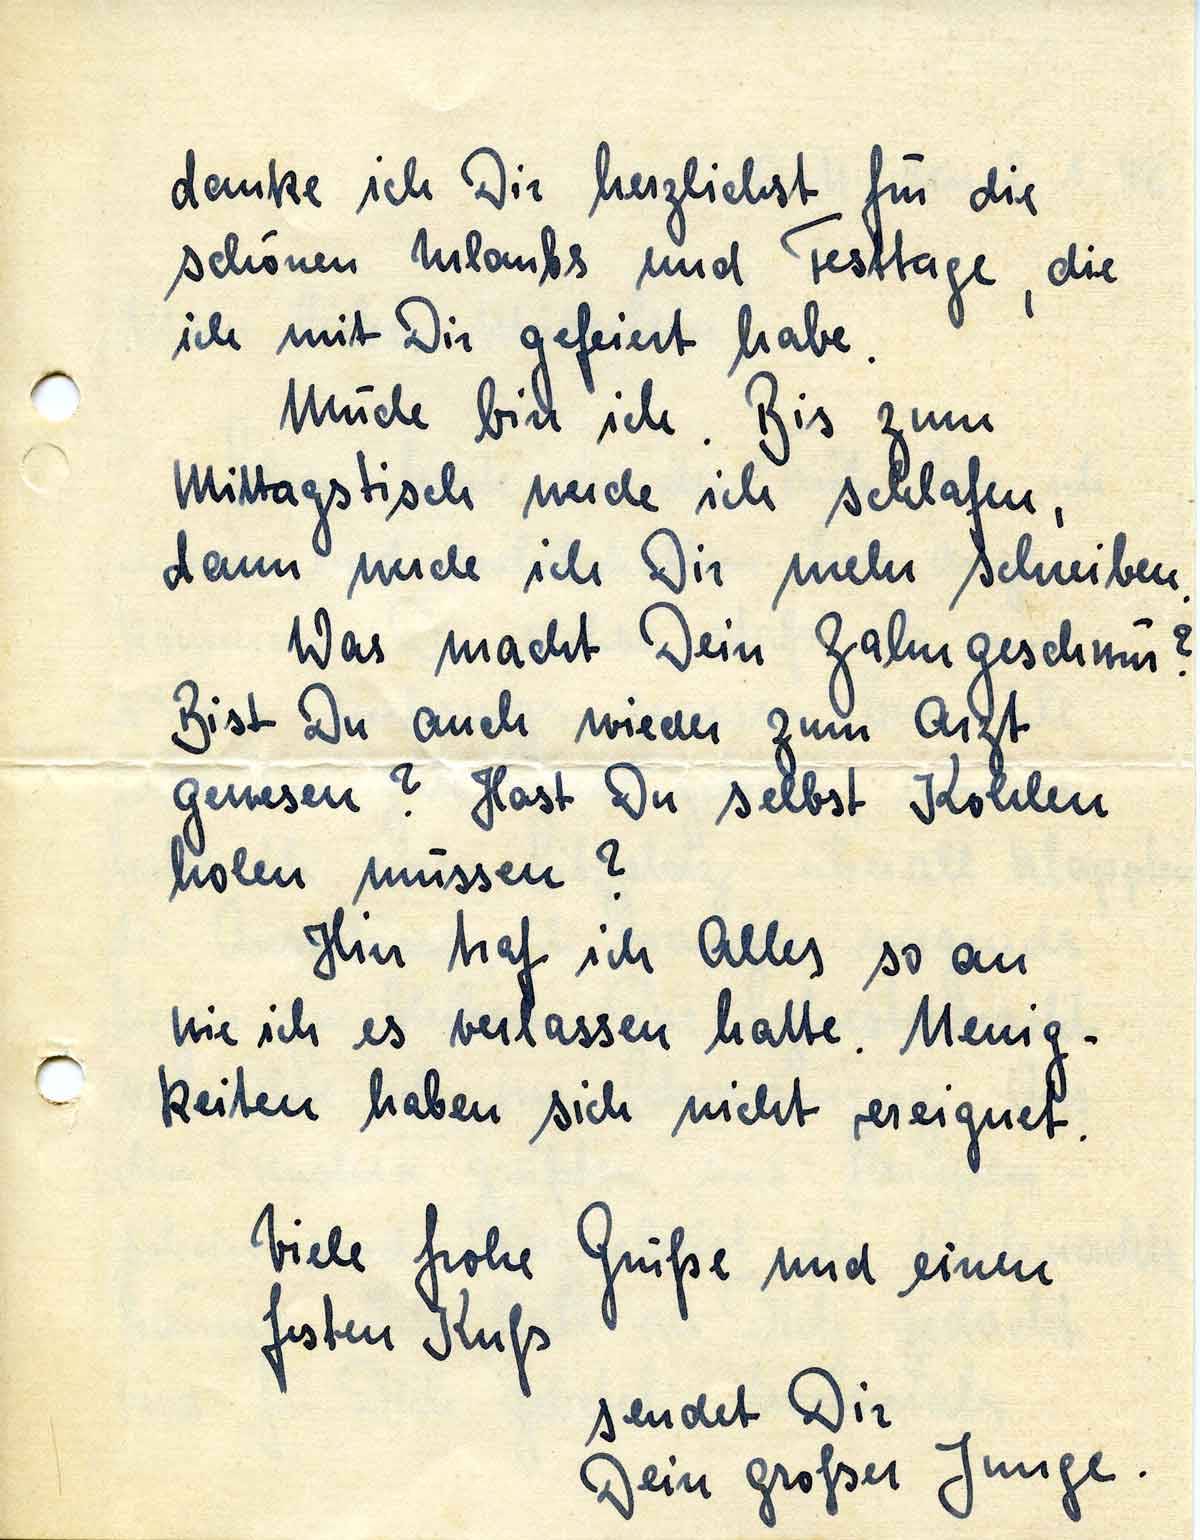 danke ich Dir herzlichst für die
schönen Urlaubs und Festtage, die
ich mit Dir gefeiert habe.
Müde bin ich. Bis zum
Mittagstisch werde ich schlafen,
dann werde ich Dir mehr schreiben.
Was macht Dein Zahngeschwür?
Bist Du auch wieder zum Arzt
gewesen? Hast Du selbst Kohlen
holen müssen?
Hier traf ich Alles so an
wie ich es verlassen hatte. Neuig-
keiten haben sich nicht ereignet.
Viele frohe Grüße und einen
festen Kuß
sendet Dir
Dein großer Junge.